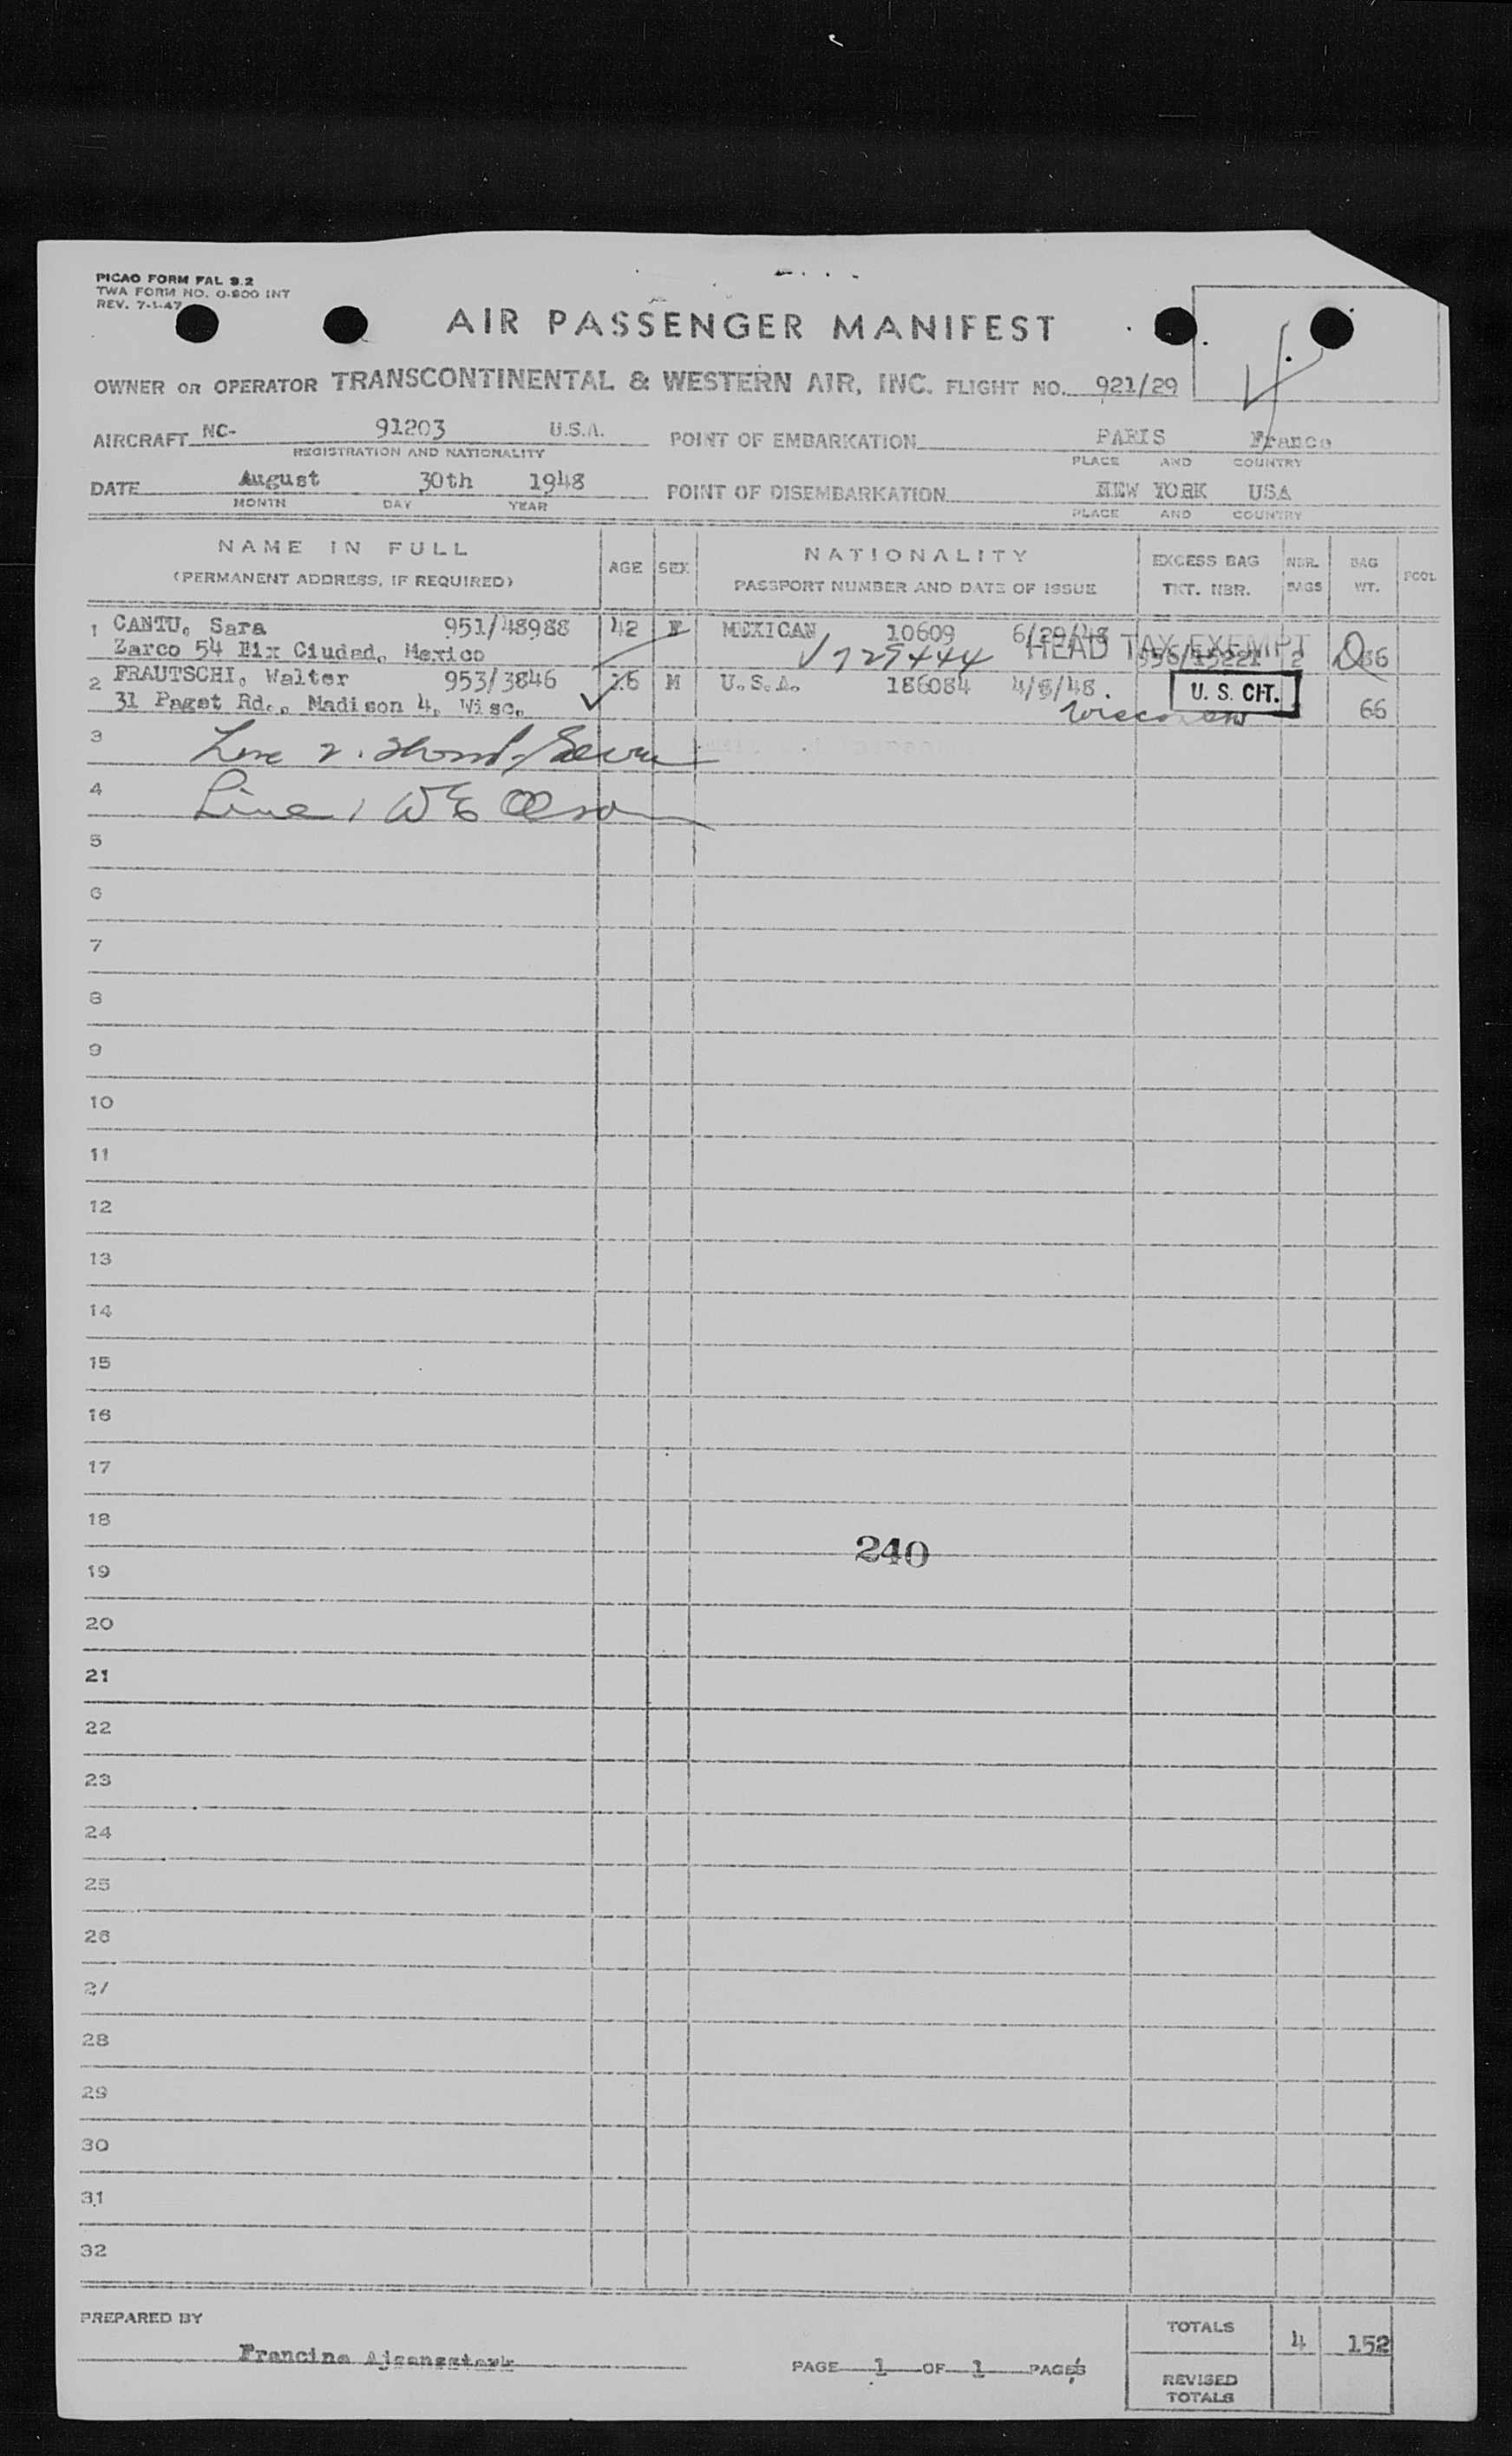 PICAO FORM FAL 9.2
TWA FORM NO. O-800 INT
REV. 7-1-47
AIR PASSENGER MANIFEST
OWNER OR OPERATOR TRANSCONTINENTAL & WESTERN AIR, INC. FLIGHT NO. 921/29
AIRCRAFT NC- 91203 U.S.A. POINT OF EMBARKATION PARIS France
REGISTRATION AND NATIONALITY PLACE AND COUNTRY
DATE August 30th 1948 POINT OF DISEMBARKATION NEW YORK USA
MONTH DAY YEAR PLACE AND COUNTRY
NAME IN FULL AGE SEX NATIONALITY EXCESS BAG NBR. BAG POOL
(PERMANENT ADDRESS, IF REQUIRED) PASSPORT NUMBER AND DATE OF ISSUE TKT. NBR. BAGS WT.
1 CANTU, Sara 951/48988 42 F MEXICAN 10609 6/29/48 HEAD TAX EXEMPT
Zarco 54 Ciudad, Mexico V729444 2 86
2 FRAUTSCHI, Walter 953/3846 M U.S.A. 186084 U. S. CIT.
31 Paget Rd., Madison 4, Wisc. Wisconsin 66
3 Line 2.
4 Line 1 W E Olson
5
6
7
8
9
10
11
12
13
14
15
16
17
18
240
19
20
21
22
23
24
25
26
27
28
29
30
31
32
PREPARED BY Francine
PAGE 1 OF 1 PAGES
TOTALS 4 152
REVISED
TOTALS